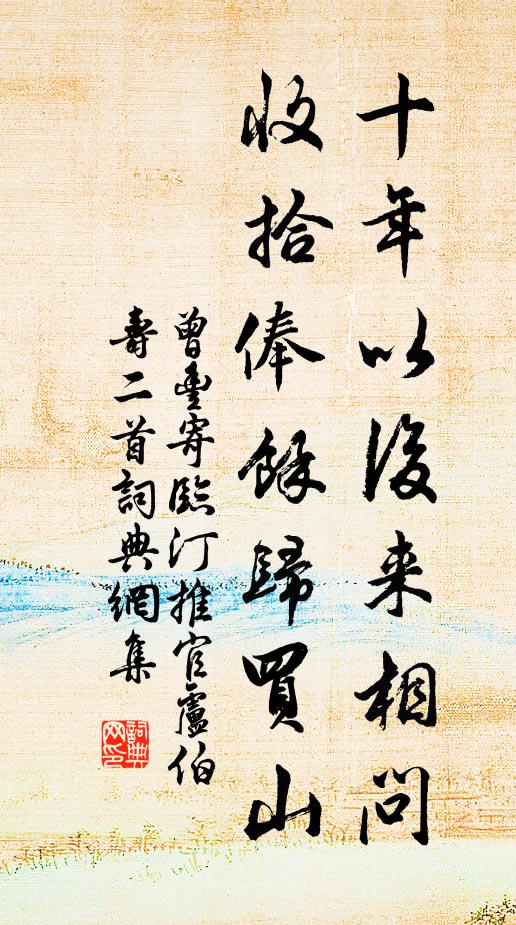 十年以後来相問
收拾俸餘歸買山
曾豐寄臨汀推官盧伯
壽二首詞典網集
詞典网印